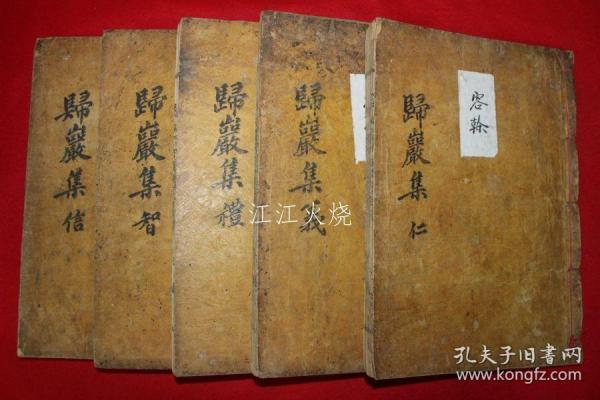 歸巖集仁
歸巖集義
歸巖集禮
歸巖集智
歸巖集信
江江火烧
孔夫子旧书网
www.kongfz.com